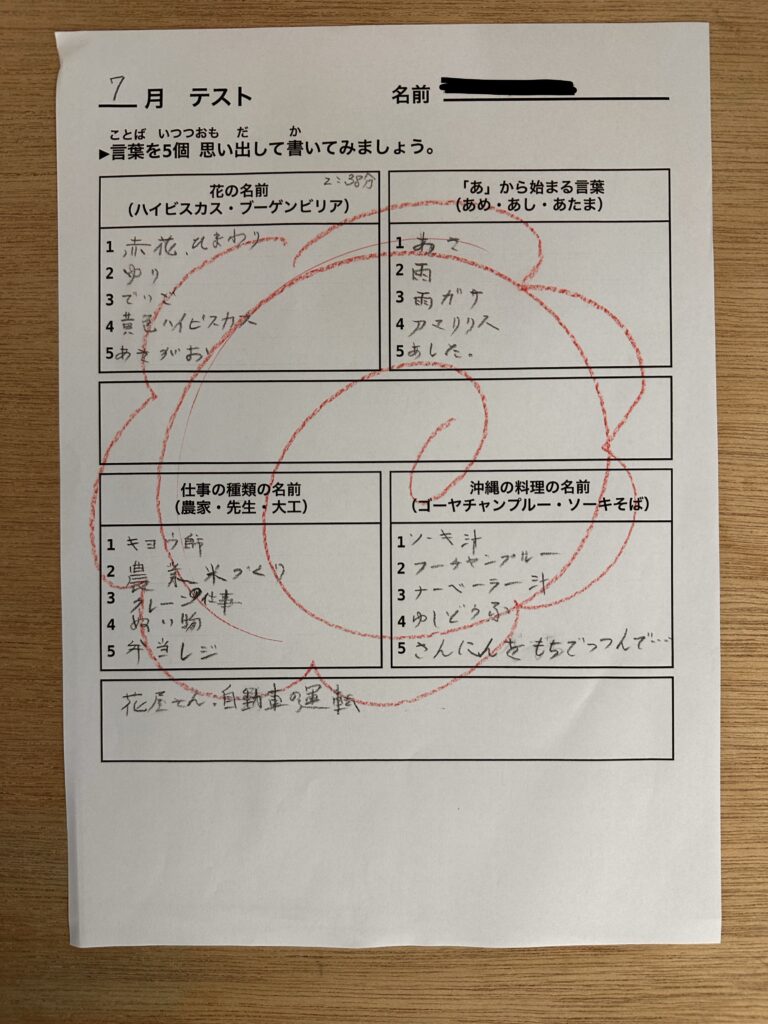 7月 テスト
名前
ことば いつつおも だ か
▶言葉を5個 思い出して書いてみましょう。
2:38分
花の名前
（ハイビスカス・ブーゲンビリア）
1 赤花、ひまわり
2 ゆり
3 でいご
4 黄色ハイビスカス
5 あさがお
「あ」から始まる言葉
（あめ・あし・あたま）
1 あさ
2 雨
3 雨ガサ
4 アマリリス
5 あした。
仕事の種類の名前
（農家・先生・大工）
1 キョウ師
2 農業 米づくり
3 クレーンの仕事
4 ぬい物
5 弁当レジ
沖縄の料理の名前
（ゴーヤチャンプルー・ソーキそば）
1 ソーキ汁
2 フーチャンプルー
3 ナーベーラー汁
4 ゆしどうふ
5 さんにんをもちでつつんで……
花屋さん・自動車の運転